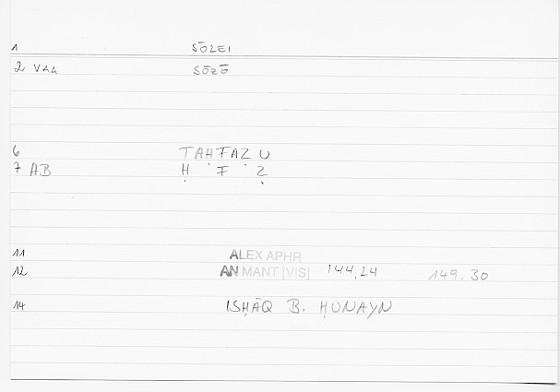 1 SŌZEI
2 VAA SŌZŌ
6 TAḤFAẒU
7 AB Ḥ F Ẓ
11 ALEX APHR
12 AN MANT [VIS] 144,24 149.30
14 ISḤĀQ B. ḤUNAYN